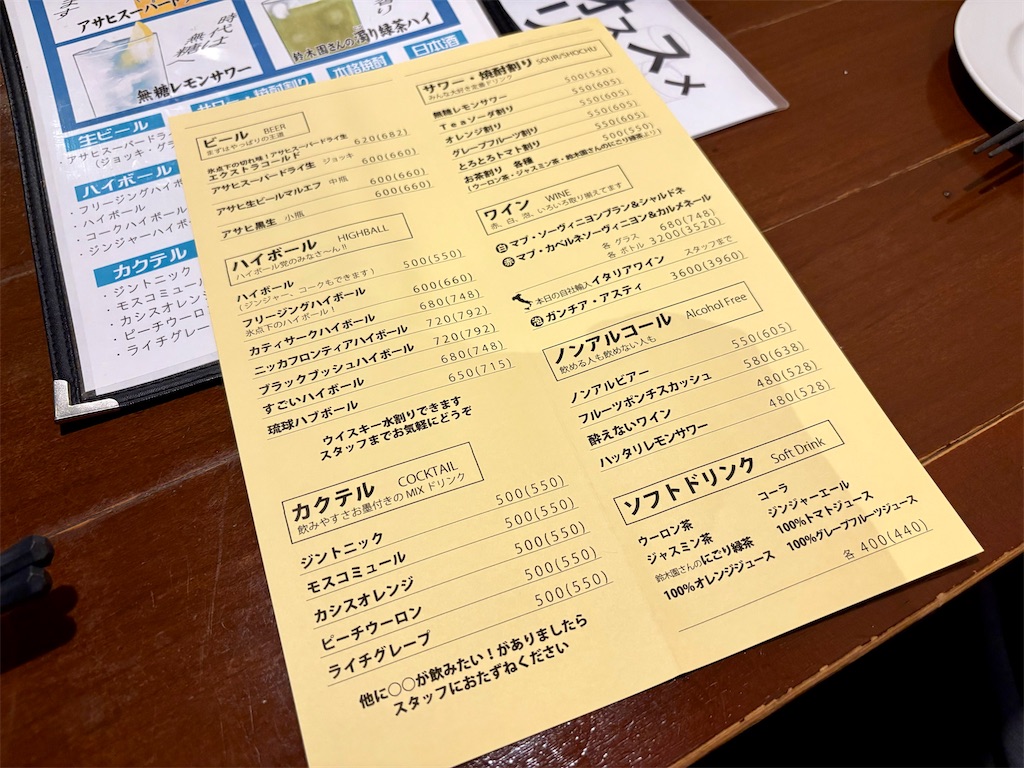 アサヒスーパードライ
時代は
無糖
無糖レモンサワー
鈴木園さんの濁り緑茶ハイ
オススメ
サワー・焼酎割り
本格焼酎
日本酒
生ビール
アサヒスーパードライ
(ジョッキ・グラ
ハイボール
・フリージングハイボ
・ハイボール
・コークハイボール
・ジンジャーハイボ
カクテル
・ジントニック
・モスコミュール
・カシスオレンジ
・ピーチウーロン
・ライチグレープ
ビール BEER
まずはやっぱりの王道
氷点下の切れ味!アサヒスーパードライ生
エクストラコールド 620(682)
アサヒスーパードライ生 ジョッキ 600(660)
アサヒ生ビールマルエフ 中瓶 600(660)
アサヒ黒生 小瓶 600(660)
ハイボール HIGHBALL
ハイボール党のみなさ~ん!!
ハイボール 500(550)
(ジンジャー、コークもできます)
フリージングハイボール 600(660)
氷点下のハイボール!
カティサークハイボール 680(748)
ニッカフロンティアハイボール 720(792)
ブラックブッシュハイボール 720(792)
すごいハイボール 680(748)
琉球ハブボール 650(715)
ウィスキー水割りできます
スタッフまでお気軽にどうぞ
カクテル COCKTAIL
飲みやすさお墨付きの MIX ドリンク
ジントニック 500(550)
モスコミュール 500(550)
カシスオレンジ 500(550)
ピーチウーロン 500(550)
ライチグレープ 500(550)
他に○○が飲みたい!がありましたら
スタッフにおたずねください
サワー・焼酎割り SOUR/SHOCHU
みんな大好き定番ドリンク
無糖レモンサワー 500(550)
Teaソーダ割り 550(605)
オレンジ割り 550(605)
グレープフルーツ割り 550(605)
とろとろトマト割り 550(605)
お茶割り 各種 500(550)
(ウーロン茶・ジャスミン茶・鈴木園さんのにごり緑茶より)
ワイン WINE
赤、白、泡、いろいろ取り揃えてます
白 マプ・ソーヴィニヨンブラン&シャルドネ
赤 マプ・カベルネソーヴィニヨン&カルメネール
各 グラス 680(748)
各 ボトル 3200(3520)
本日の自社輸入イタリアワイン スタッフまで
泡 ガンチア・アスティ 3600(3960)
ノンアルコール Alcohol Free
飲める人も飲めない人も
ノンアルビアー 550(605)
フルーツポンチスカッシュ 580(638)
酔えないワイン 480(528)
ハッタリレモンサワー 480(528)
ソフトドリンク Soft Drink
ウーロン茶
ジャスミン茶
鈴木園さんのにごり緑茶
100%オレンジジュース
コーラ
ジンジャーエール
100%トマトジュース
100%グレープフルーツジュース
各 400(440)